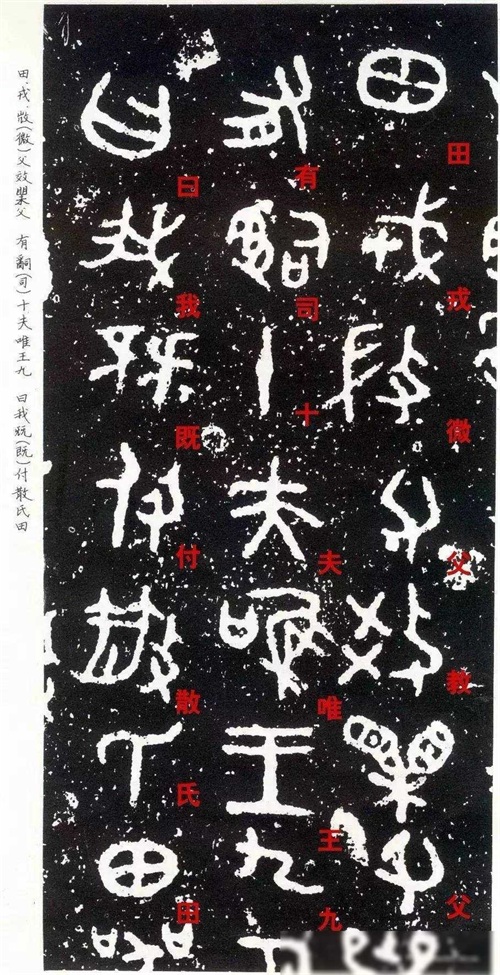 田戎微父教父
有司十夫唯王九
曰我既付散氏田
田.戎.(微)父效父 有嗣(司)十夫唯王九 曰我(既)付散氏田